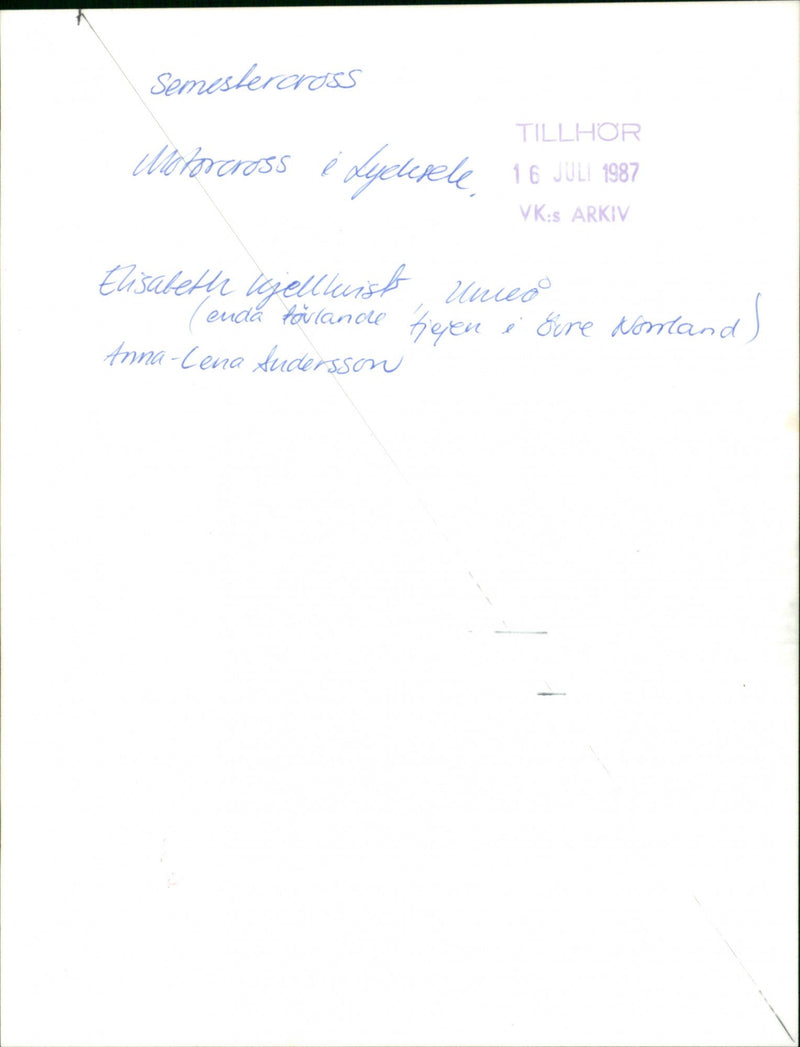 Semestercross
TILLHÖR
Motorcross i Lycksele.
16 JULI 1987
VK:s ARKIV
Elisabeth Kjellkvist, Umeå
(enda tävlande tjejen i Övre Norrland)
Anna-Lena Andersson